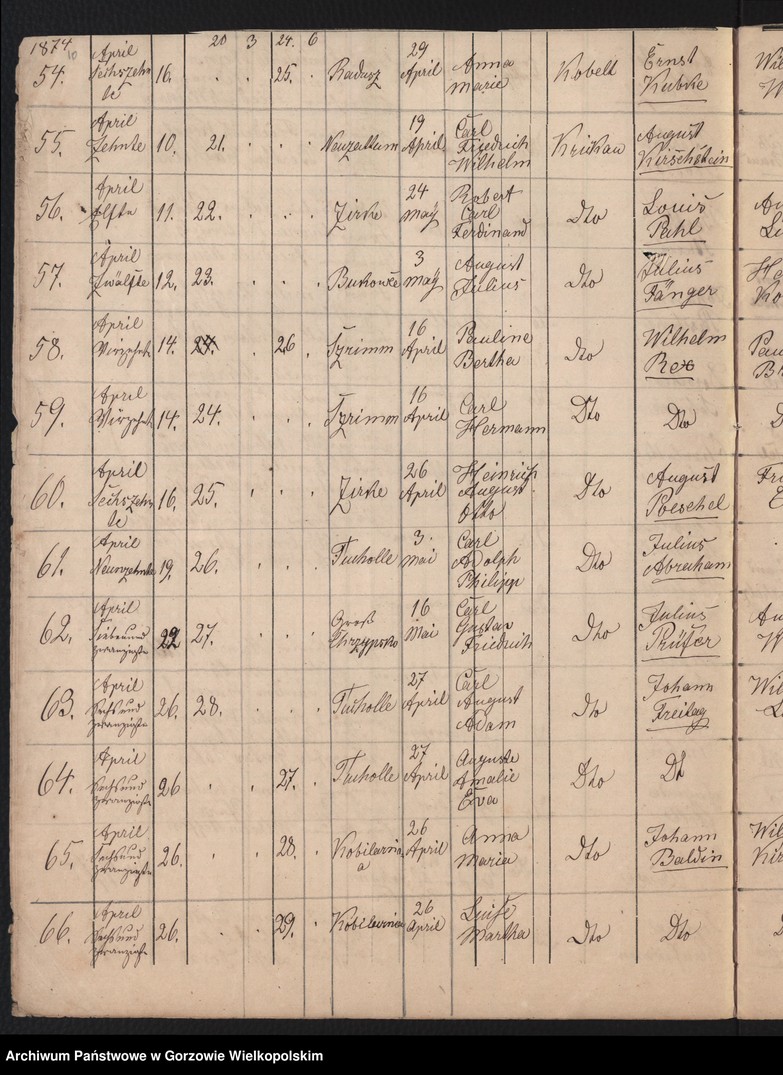 1874 20 3 24. 6
54. April Sechszehnte 16. 25. Radusz 29 April Anna Marie Kobelt Ernst Kubske
55. April Zehnte 10. 21. Neuzattum 19 April Carl Friedrich Wilhelm Krickau August Kirschstein
56. April Elfte 11. 22. Zirke 24 May Robert Carl Ferdinand Dto Louis Pahl
57. April Zwölfte 12. 23. 3 May August Julius Dto Julius Fänger
58. April 14. 26 16 April Pauline Bertha Dto Wilhelm Rex
59. April 14. 24. 16 April Carl Hermann Dto Dto
60. April Sechszehnte 16. 25. Zirke 26 April Heinrich August Otto Dto August Poeschel
61. April Neunzehnte 19. 26. Tucholle 3. Mai Carl Adolph Philipp Dto Julius Abraham
62. April 27. Groß Chrzypsko 16 Mai Carl Gustav Friedrich Dto Julius Prüfer
63. April Sechs und zwanzigste 26. 28. Tucholle 27 April Carl August Adam Dto Johann Freitag
64. April Sechs und zwanzigste 26 27. Tucholle 27 April Auguste Amalie Eva Dto Dt
65. April Sechs und zwanzigste 26. 28. 26 April Anna Maria Dto Johann Baldin
66. April Sechs und zwanzigste 26. 29. 26 April Luise Martha Dto Dto
Archiwum Państwowe w Gorzowie Wielkopolskim